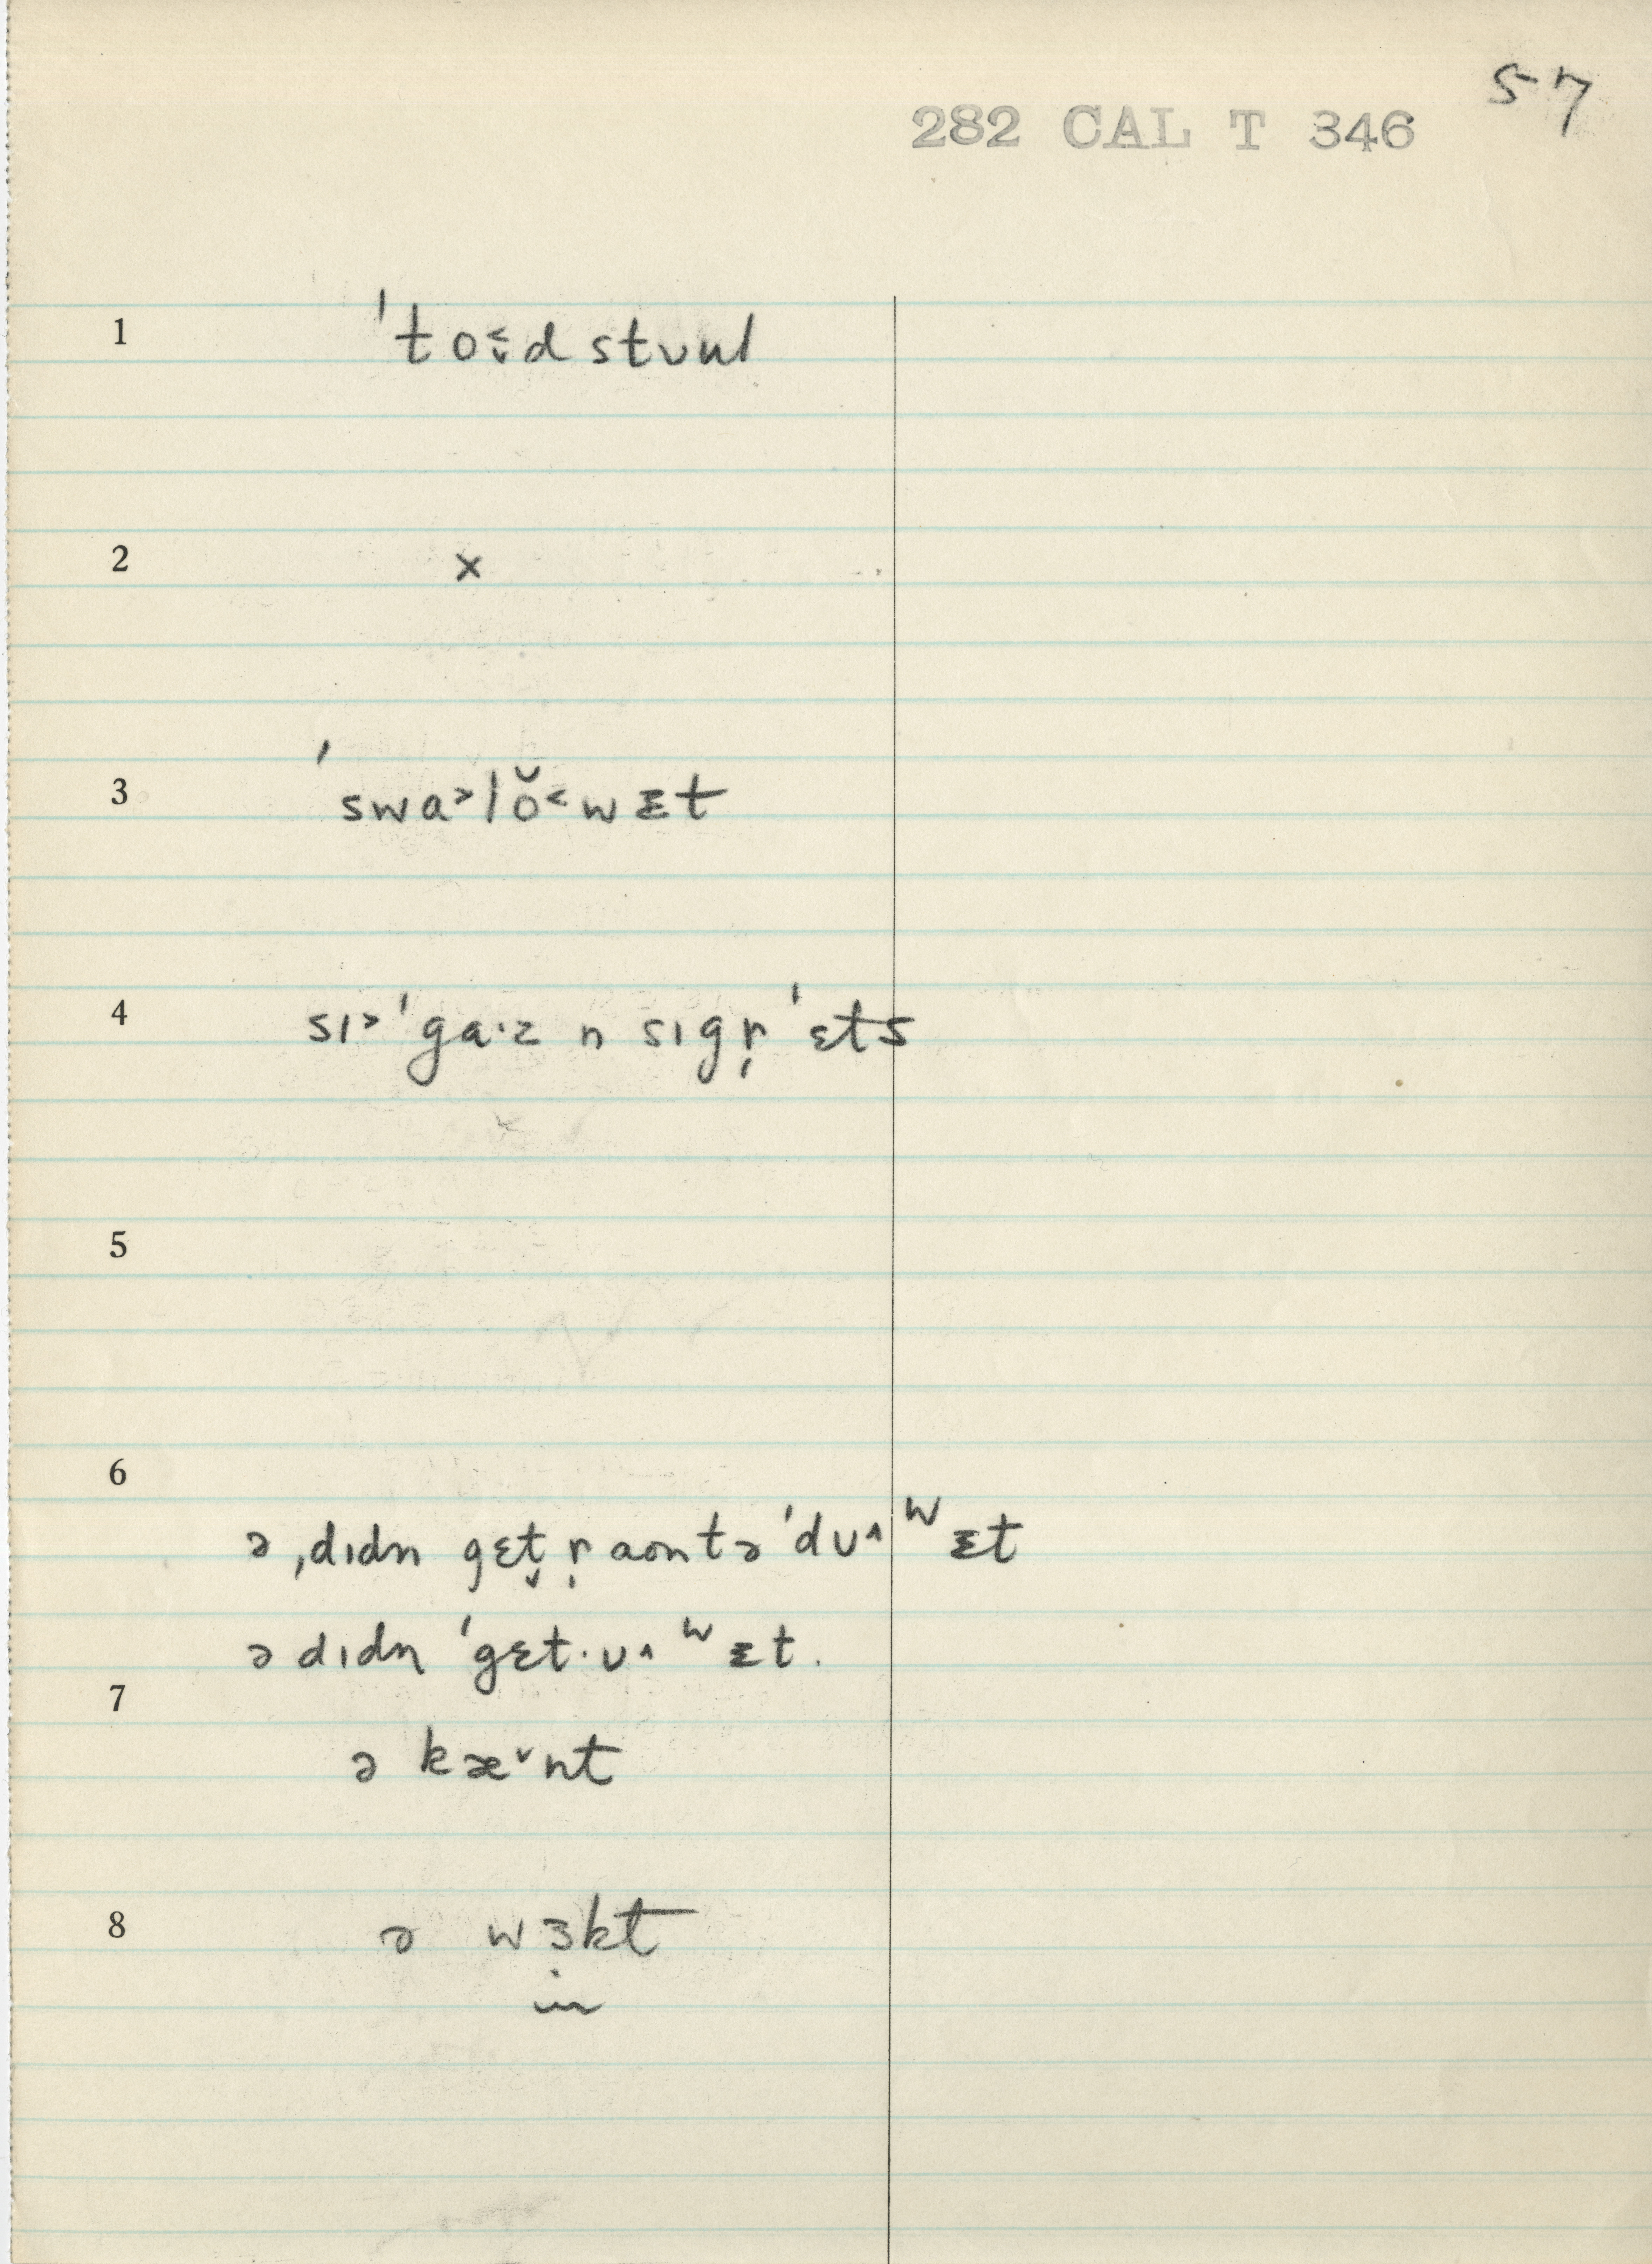 57
282 CAL T 346
1 ˈto˂̬d stuul
2 x
3 ˈswa˃lŏ˂wɪt
4 sɪ˃ˈga·z n sɪgr̩ˈɛts
5
6
ə ˌdɪdn gɛt̬ r̩ aontəˈdu^ʷɪt
ə dɪdn ˈgɛt·u^ʷɪt.
7
ə kæˇnt
8 ə wɜkt